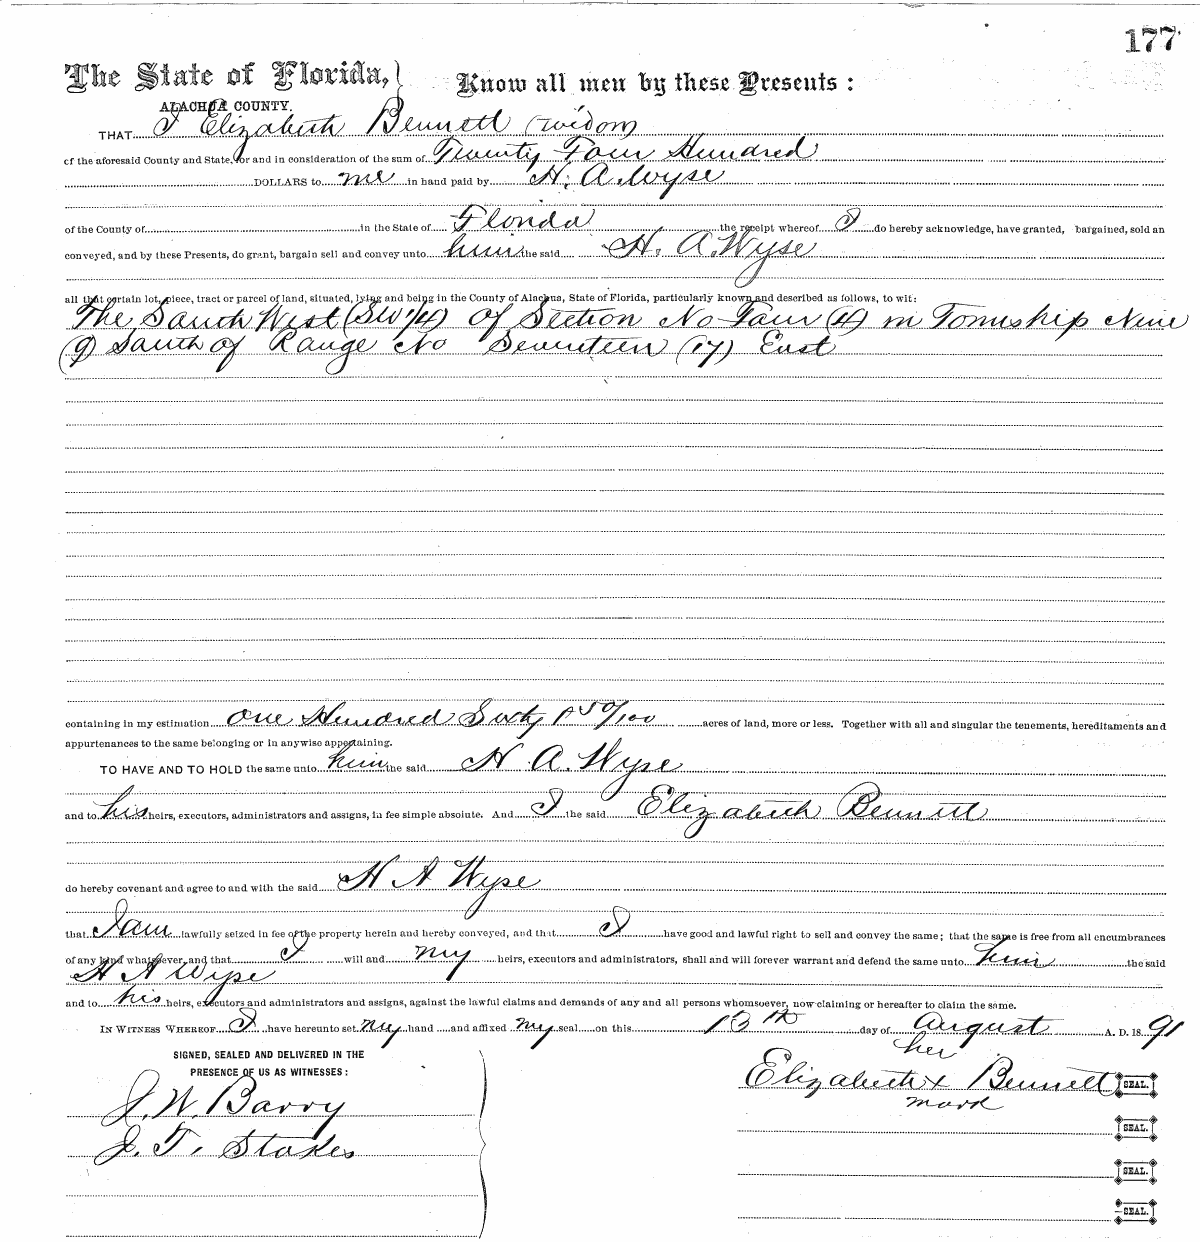 177
The State of Florida,
Know all men by these Presents :
ALACHUA COUNTY.
THAT I Elizabeth Bennett (widom
of the aforesaid County and State, for and in consideration of the sum of Twenty Four Hundred
DOLLARS to me in hand paid by H. A. Wyse
of the County of in the State of Florida the receipt whereof I do hereby acknowledge, have granted, bargained, sold an
conveyed, and by these Presents, do grant, bargain sell and convey unto him the said H. A. Wyse
all that certain lot, piece, tract or parcel of land, situated, lying and being in the County of Alachua, State of Florida, particularly known and described as follows, to wit:
The South West (SW 1/4) of Section No Four (4) in Township Nine
(9) South of Range No Seventeen (17) East
containing in my estimation one Hundred Sixty 50/100 acres of land, more or less. Together with all and singular the tenements, hereditaments and
appurtenances to the same belonging or in anywise appertaining.
TO HAVE AND TO HOLD the same unto him the said H. A. Wyse
and to his heirs, executors, administrators and assigns, in fee simple absolute. And I the said Elizabeth Bennett
do hereby covenant and agree to and with the said H A Wyse
that I am lawfully seized in fee of the property herein and hereby conveyed, and that I have good and lawful right to sell and convey the same; that the same is free from all encumbrances
of any kind whatever, and that I will and my heirs, executors and administrators, shall and will forever warrant and defend the same unto him the said
H A Wyse
and to his heirs, executors and administrators and assigns, against the lawful claims and demands of any and all persons whomsoever, now claiming or hereafter to claim the same.
IN WITNESS WHEREOF I have hereunto set my hand and affixed my seal on this 13th day of August A. D. 18 91
SIGNED, SEALED AND DELIVERED IN THE
PRESENCE OF US AS WITNESSES :
her
Elizabeth x Bennett SEAL.
mark
J. W. Barry
SEAL.
J. T. Stokes
SEAL.
SEAL.